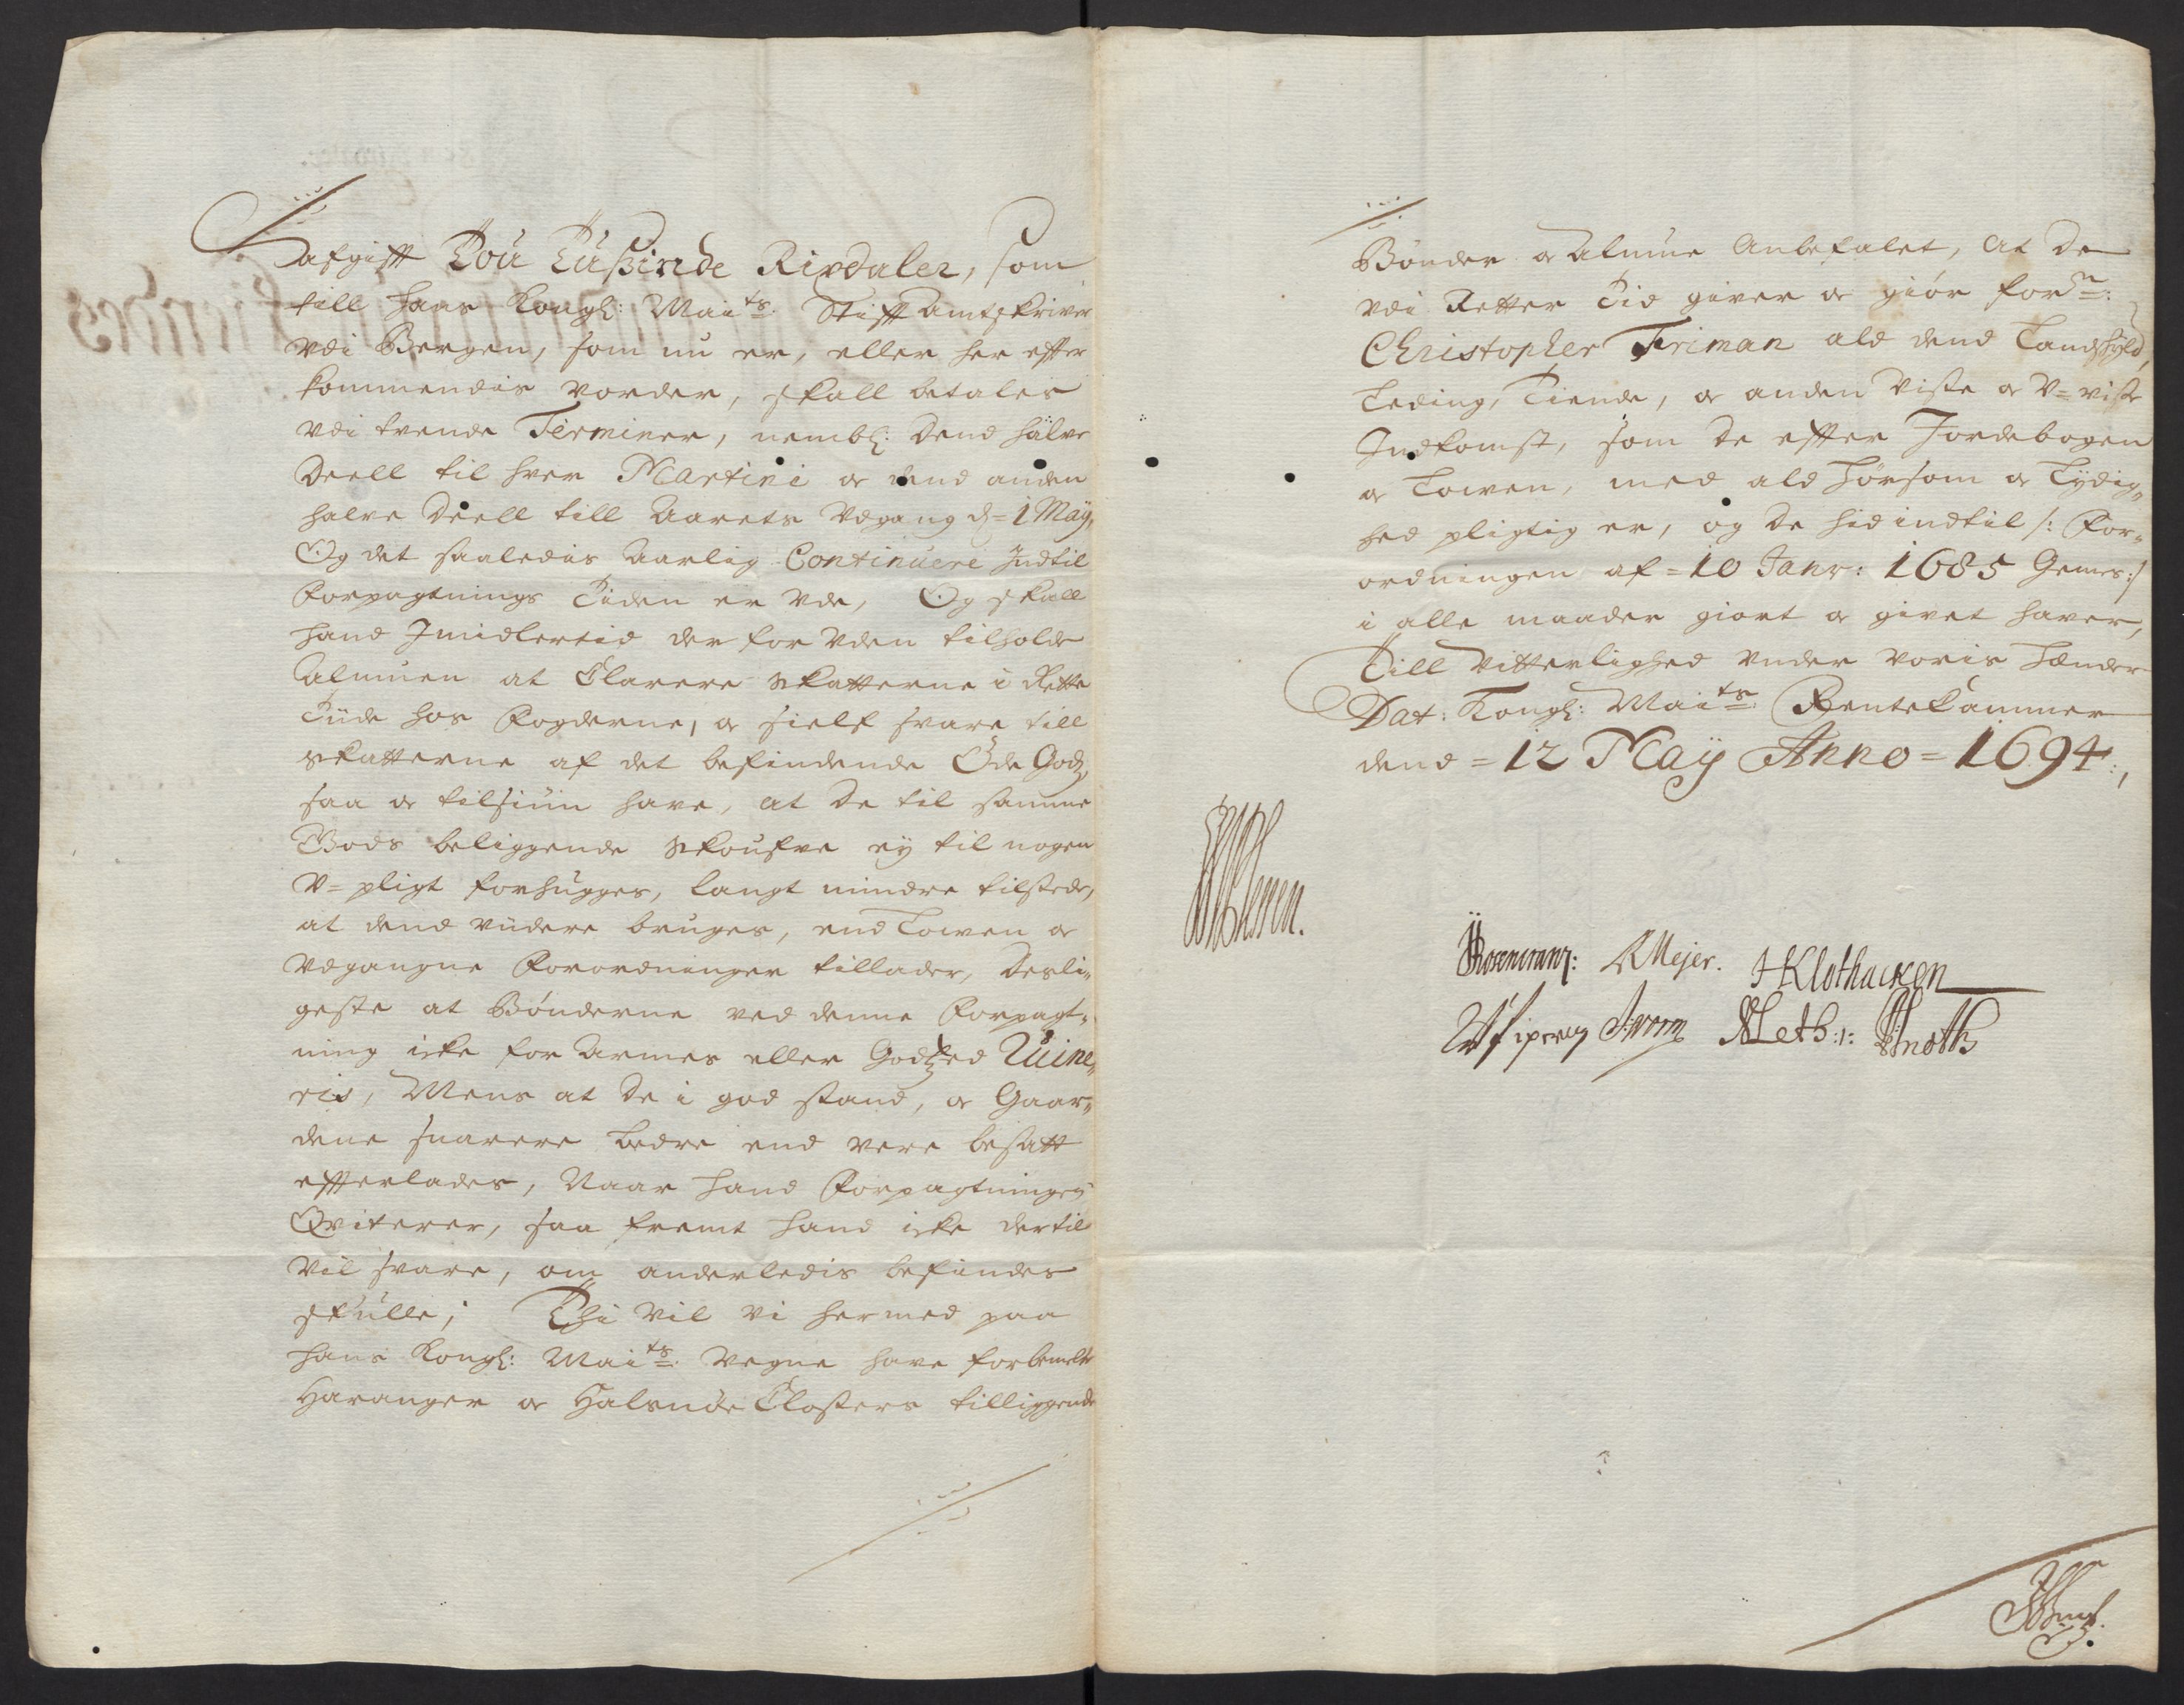 afgifft Tou Tusinde Rixdaler, som
till hans Kongl: Maits. Stifft Amtskriver
udi Bergen, som nu er, eller her effter
kommendis vorder, skall betales
udi tvende Terminer, nembl: dend halve
Deell til hver Martini oc dend anden
halve Deell till Aarets Udgang d= 1 Maÿ,
Og det saaledis Aarlig Continuere Indtil
Forpagtnings Tiden er Ude, Og skall
hand Imidlertid der for uden tilholde
Almuen at Clarere skatterne i Rette
Tiide hos Fogderne, oc sielf svare till
skatterne af det befindende Øde Godz,
saa oc tilsiun have, at de til samme
Gods beliggende Skoufve eÿ til nogen
U=pligt forhugges, langt mindre tilstede,
at dend viidere bruges, end Lowen oc
Udgangne Forordninger tillader, Desli-
geste at Bønderne ved denne Forpagt-
ning icke for Armes eller Godtzed Ruine-
ris, Mens at de i god stand, oc Gaar-
dene snarere bedre end vere besatt
effterlades, Naar hand Forpagtningen
Qviterer, saa fremt hand icke dertil
Vil svare, om anderledis befindes
skulle; Thi Vil vi hermed paa
Hans Kongl: Maits. Vegne have forbemelte
Haranger oc Halsnøe Closters tilliggende
Bønder oc Almue Anbefalet, At De
udi Retter Tid giver oc giør forne:
Christopher Friman ald dend Landskyld,
Leding, Tiende, oc anden Visse oc U=visse
Indkomst, som De effter Jordebogen
oc Lowen, med ald Hørsom oc Lydig-
hed pligtig er, og De hid indtil /: For-
ordningen af = 10 Janr: 1685 Gemes :/
i alle maader giort oc givet haver,
Till Vitterlighed Under Voris Hænder
Dat: Kongl: Maits. Rentekammer
dend = 12 Maÿ Anno = 1694:,
Rosencranz: Meÿer. H Klothacken
Worm Leth:: Knoth